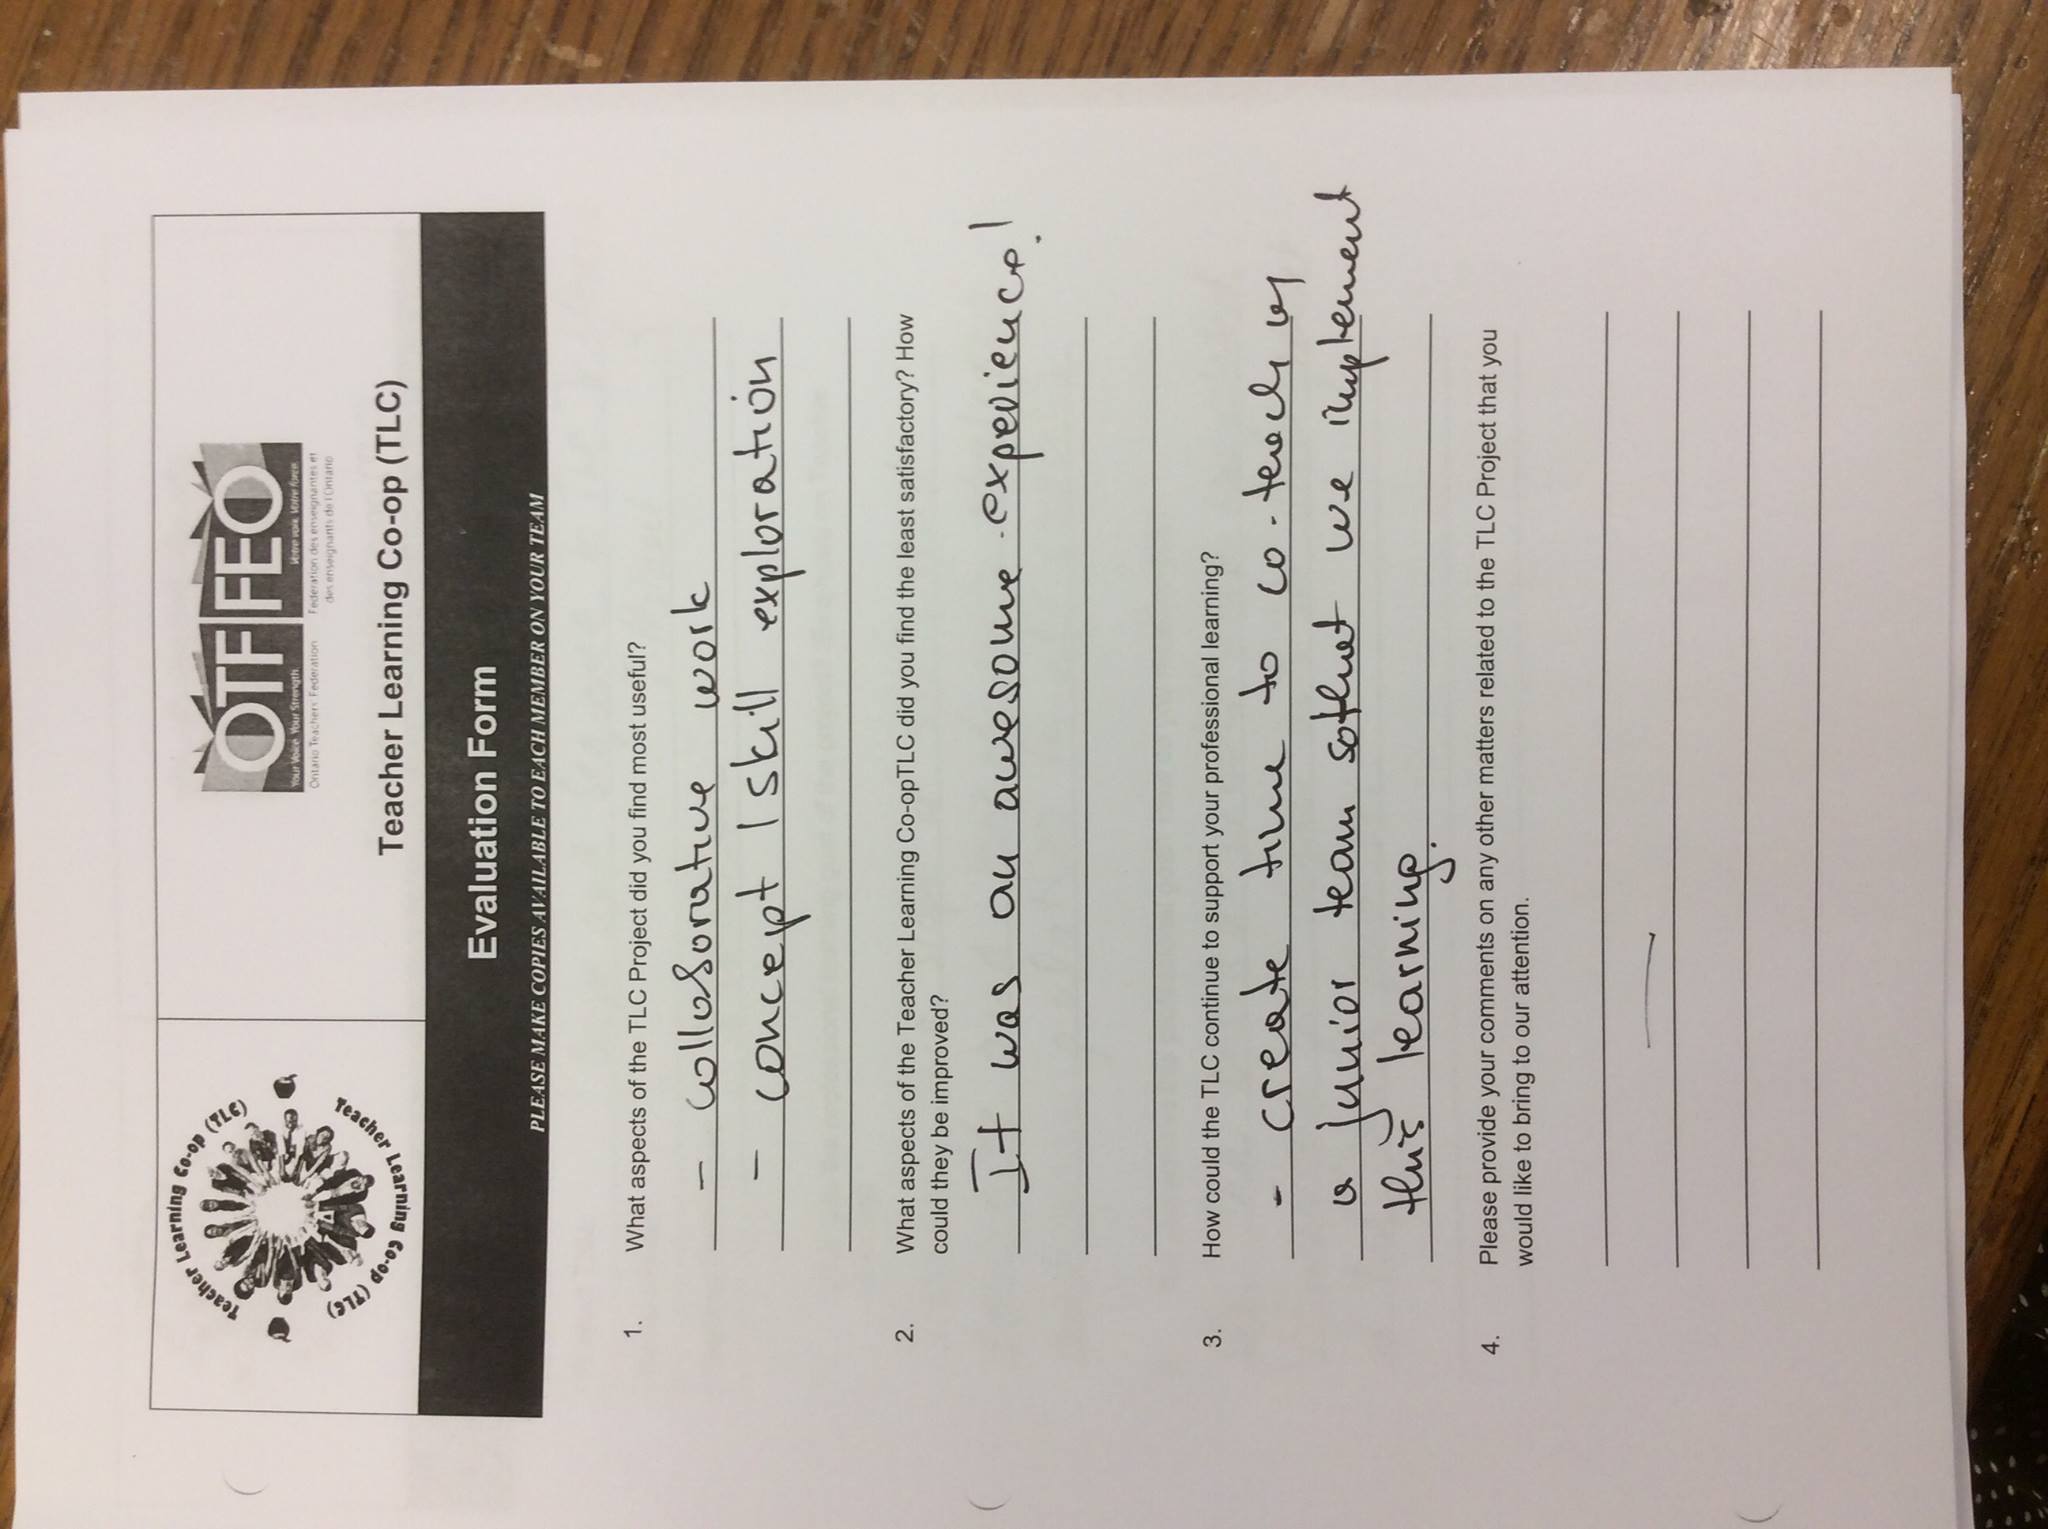 Teacher Learning Co-op (TLC)
Teacher Learning Co-op (TLC)
OTF FEO
Your Voice. Your Strength. Votre voix. Votre force.
Ontario Teachers' Federation Fédération des enseignantes et
des enseignants de l'Ontario
Teacher Learning Co-op (TLC)
Evaluation Form
PLEASE MAKE COPIES AVAILABLE TO EACH MEMBER ON YOUR TEAM
1. What aspects of the TLC Project did you find most useful?
- collaborative work
- concept / skill exploration
2. What aspects of the Teacher Learning Co-opTLC did you find the least satisfactory? How
could they be improved?
It was an awesome experience!
3. How could the TLC continue to support your professional learning?
- create time to co-teach as
a junior team so that we implement
this learning.
4. Please provide your comments on any other matters related to the TLC Project that you
would like to bring to our attention.